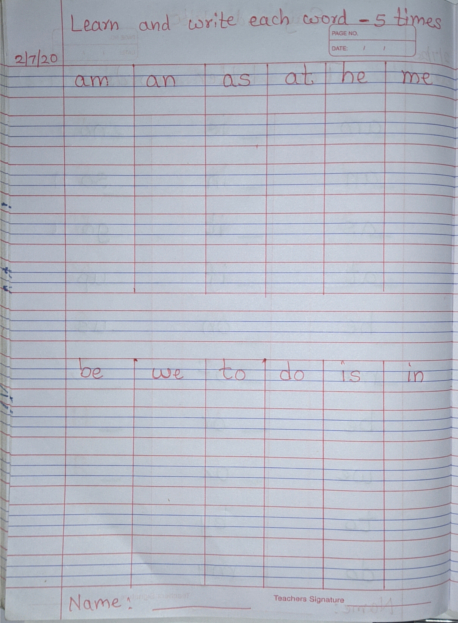 Learn and write each word - 5 times
PAGE NO.
DATE: / /
2/7/20
am an as at he me
be we to do is in
Name: ___________
Teachers Signature